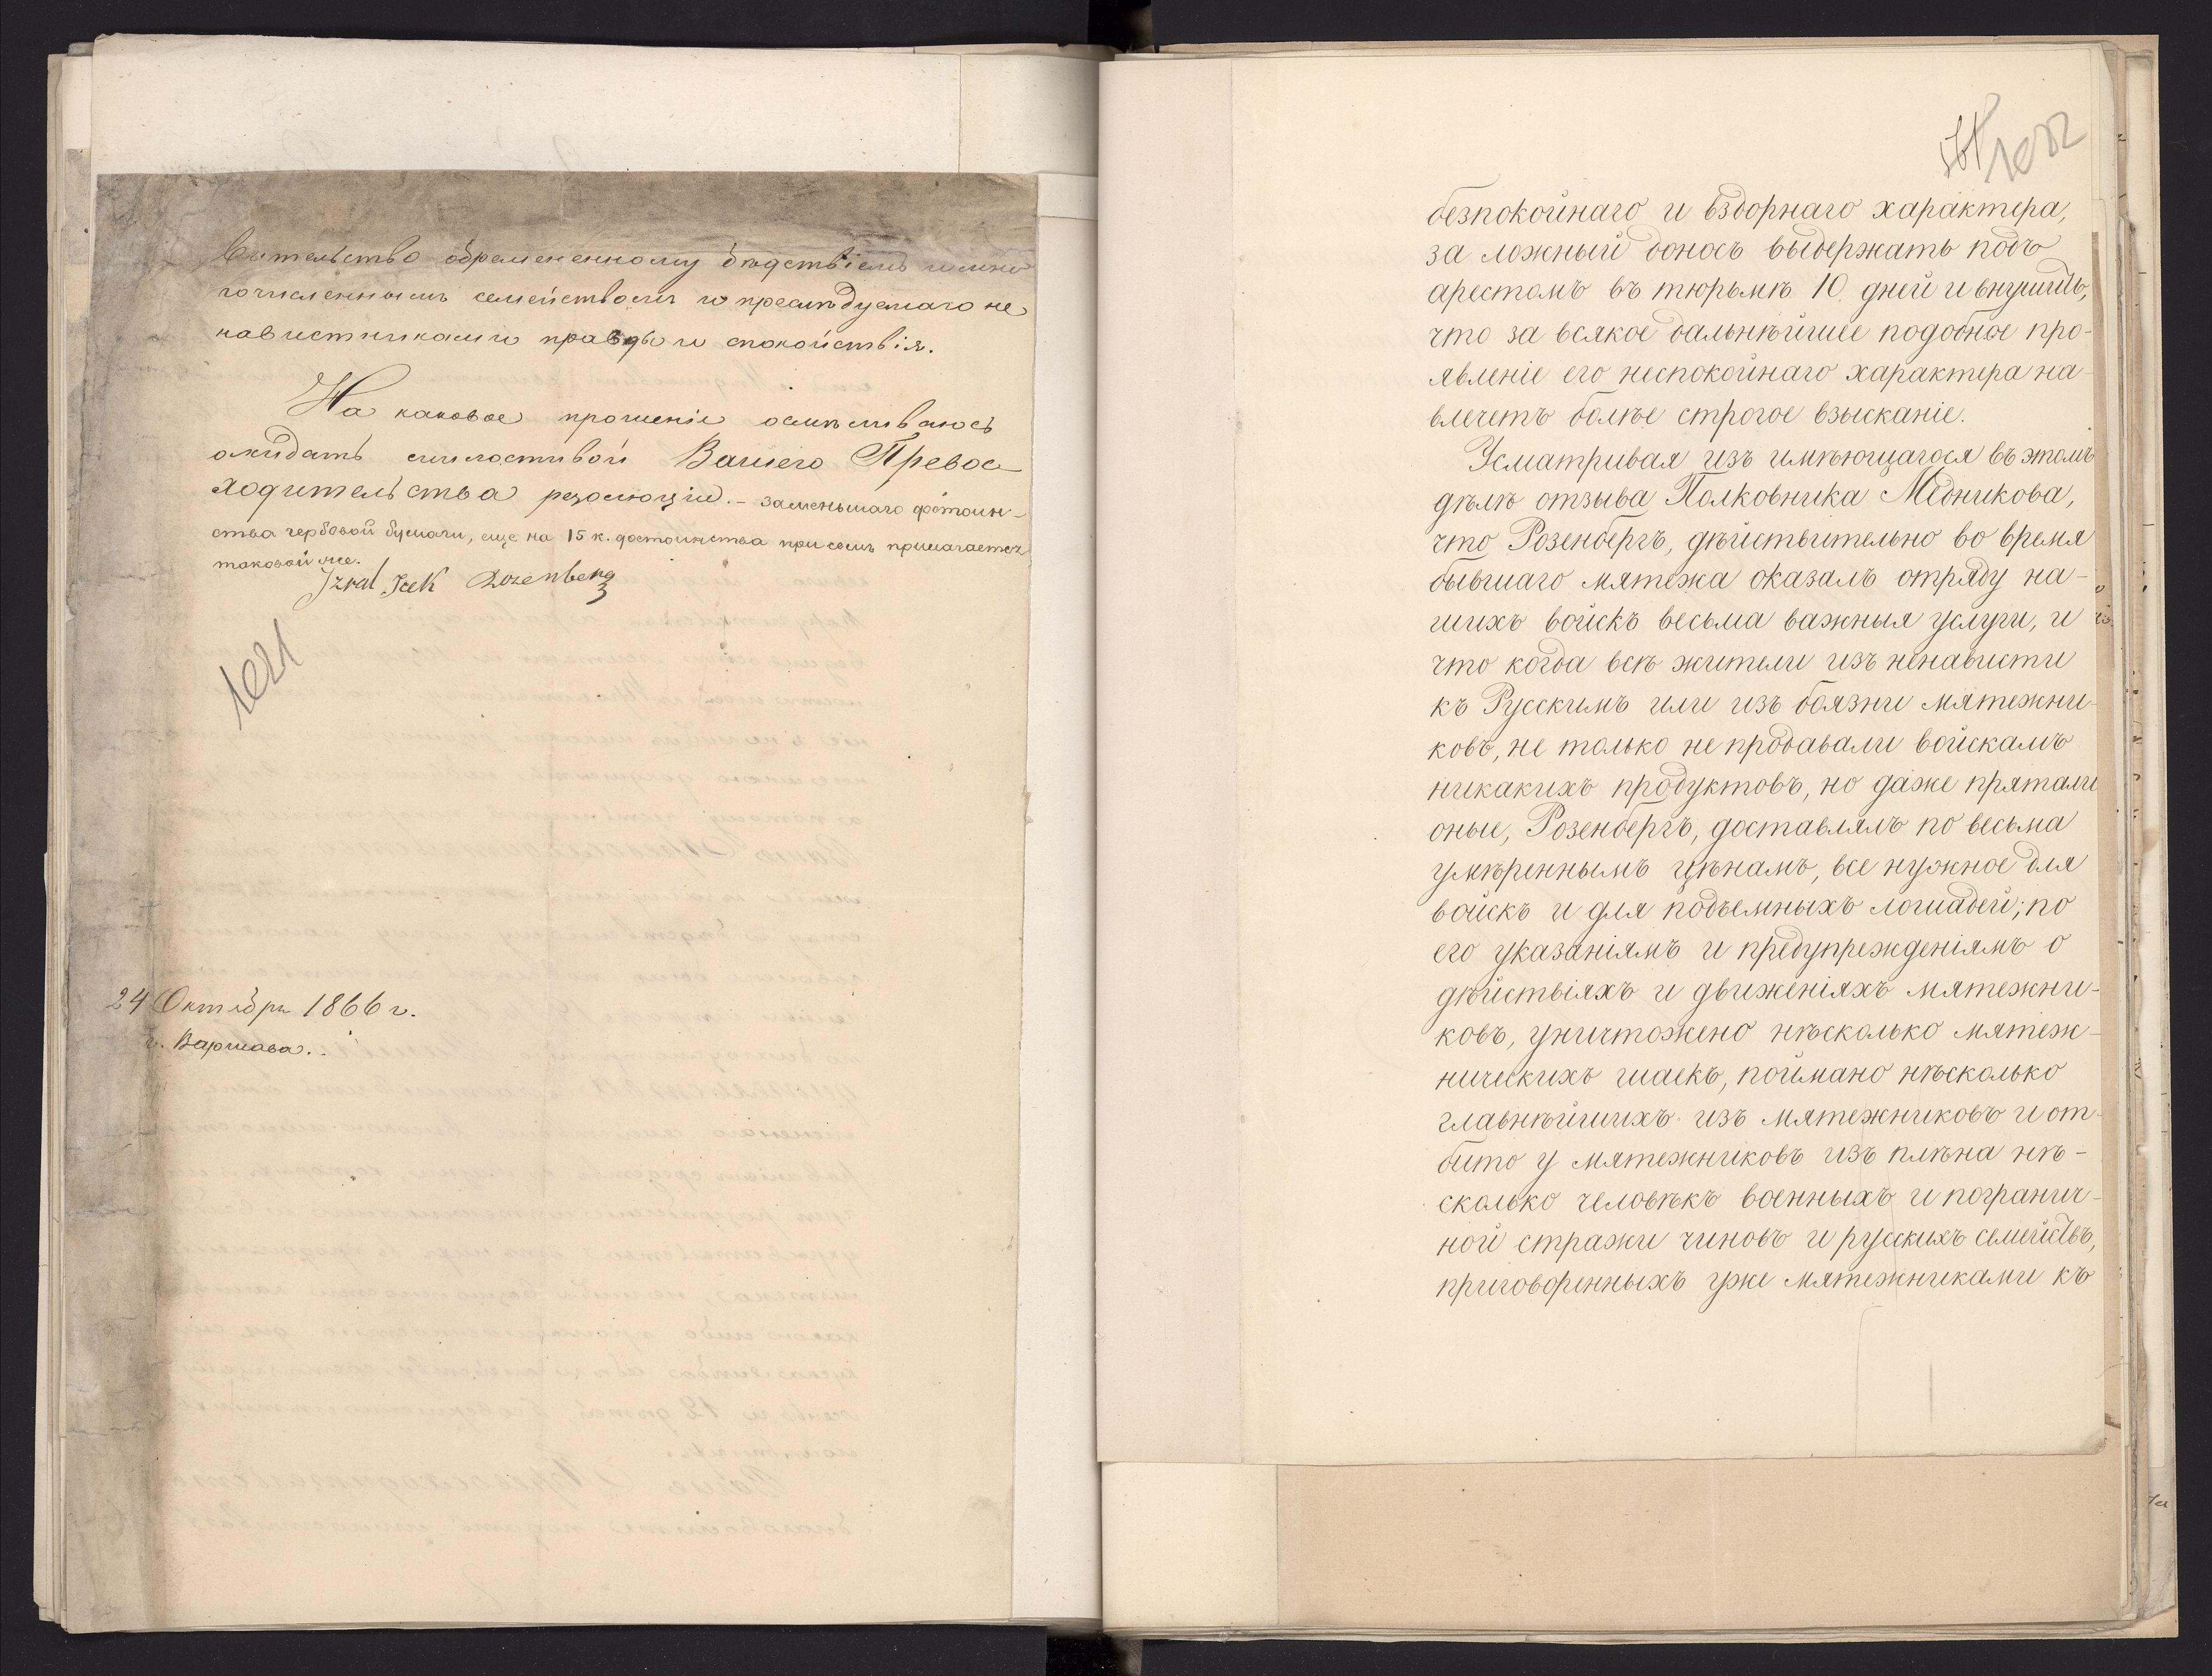 вительство обремененному бѣдствіемъ и мно
гочисленнымъ семействомъ и преслѣдуемаго не
навистниками правды и спокойствія.
На каковое прошеніе осмѣливаюсь
ожидать милостивой Вашего Превос
ходительства резолюціи. - За меньшаго достоин-
ства гербовой бумаги, еще на 15 к. достоинства при семъ прилагается
таковой же.
Izral Icek Rozenberg
1021
24 Октября 1866 г.
г. Варшава.
1022
безпокойнаго и вздорнаго характера,
за ложный доносъ выдержать подъ
арестомъ въ тюрьмѣ 10 дней и внушить,
что за всякое дальнѣйшее подобное про-
явленіе его неспокойнаго характера на-
влечетъ болѣе строгое взысканіе.
Усматривая изъ имѣющагося въ этомъ
дѣлѣ отзыва Полковника Мѣдникова,
что Розенбергъ, дѣйствительно во время
бывшаго мятежа оказалъ отряду на-
шихъ войскъ весьма важныя услуги, и
что когда всѣ жители изъ ненависти
къ Русскимъ или изъ боязни мятежни-
ковъ, не только не продавали войскамъ
никакихъ продуктовъ, но даже прятали
оные, Розенбергъ, доставлялъ по весьма
умѣреннымъ цѣнамъ, все нужное для
войскъ и для подъемныхъ лошадей; по
его указаніямъ и предупрежденіямъ о
дѣйствіяхъ и движеніяхъ мятежни-
ковъ, уничтожено нѣсколько мятеж-
ническихъ шаекъ, поймано нѣсколько
главнѣйшихъ изъ мятежниковъ и от-
бито у мятежниковъ изъ плѣна нѣ-
сколько человѣкъ военныхъ и погранич-
ной стражи чиновъ и русскихъ семействъ,
приговоренныхъ уже мятежниками къ